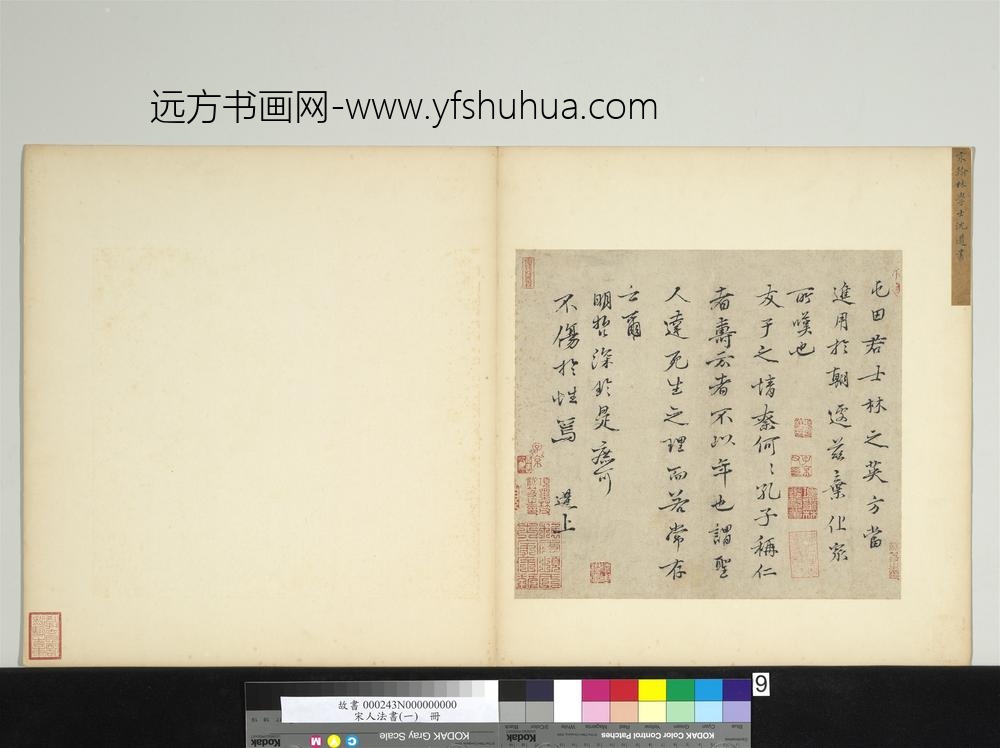 远方书画网-www.yfshuhua.com
宋翰林學士沈遘書
屯田若士林之英方當
進用於朝遽茲棄化衆
所嘆也
友于之情奈何〻孔子稱仁
者壽云者不以年也謂聖
人達死生之理而若常存
云爾
明哲深於是庶可
不傷於性焉
遘上
9
故書 000243N000000000
宋人法書(一) 冊
Kodak
KODAK Gray Scale
C Y M
KODAK Color Control Patches
Blue Cyan Green Yellow Red Magenta White 3/Color Black